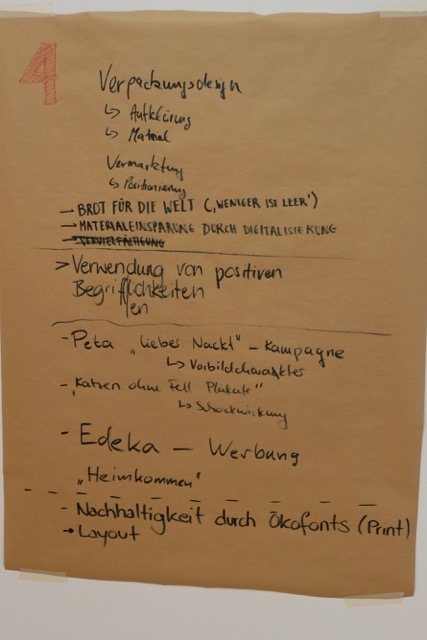 4
Verpackungsdesign
↳ Aufklärung
↳ Material
Vermarktung
↳ Positionierung
→ BROT FÜR DIE WELT („WENIGER IST LEER“)
→ MATERIALEINSPARUNG DURCH DIGITALISIERUNG
> Verwendung von positiven
Begrifflichkeiten
- Peta „lieber Nackt“ - Kampagne
↳ Vorbildcharakter
- „Katzen ohne Fell Plakate“
↳ Schockwirkung
- Edeka - Werbung
„Heimkommen“
- Nachhaltigkeit durch Ökofonts (Print)
→ Layout